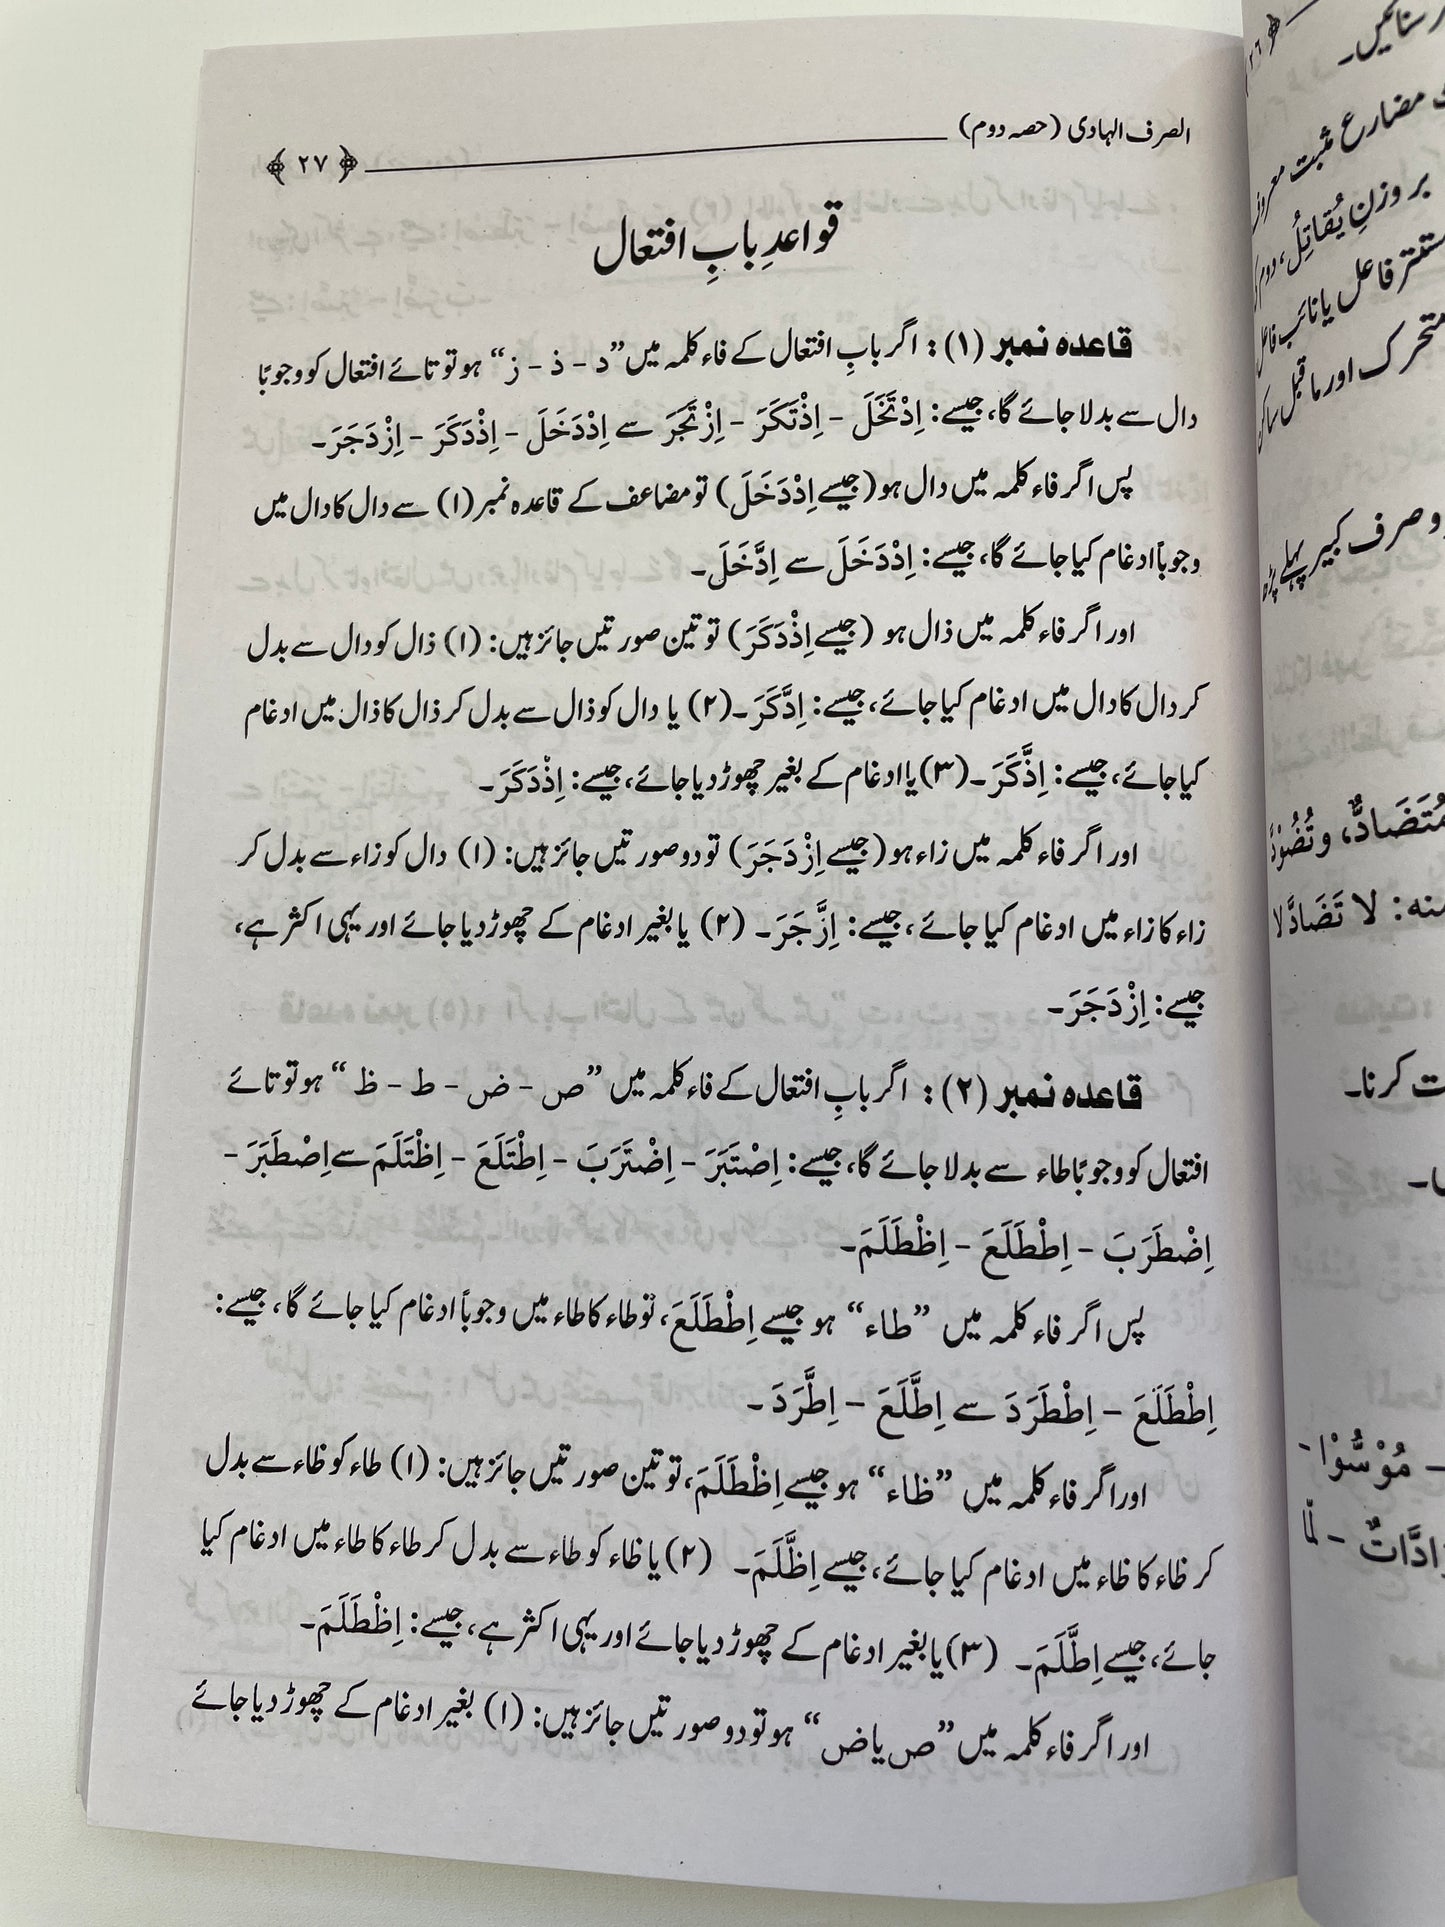 الصرف الہادی (حصہ دوم)
﴿ ۲۷ ﴾
قواعدِ بابِ افتعال
قاعدہ نمبر (۱): اگر بابِ افتعال کے فاء کلمہ میں ”د - ذ - ز“ ہو تو تائے افتعال کو وجوبًا
دال سے بدلا جائے گا، جیسے: اِدْتَخَلَ - اِذْتَکَرَ - اِزْتَجَرَ سے اِدْدَخَلَ - اِذْدَکَرَ - اِزْدَجَرَ۔
پس اگر فاء کلمہ میں دال ہو (جیسے اِدْدَخَلَ) تو مضاعف کے قاعدہ نمبر (۱) سے دال کا دال میں
وجوباً ادغام کیا جائے گا، جیسے: اِدْدَخَلَ سے اِدَّخَلَ۔
اور اگر فاء کلمہ میں ذال ہو (جیسے اِذْدَکَرَ) تو تین صورتیں جائز ہیں: (۱) ذال کو دال سے بدل
کر دال کا دال میں ادغام کیا جائے، جیسے: اِدَّکَرَ۔ (۲) یا دال کو ذال سے بدل کر ذال کا ذال میں ادغام
کیا جائے، جیسے: اِذَّکَرَ۔ (۳) یا ادغام کے بغیر چھوڑ دیا جائے، جیسے: اِذْدَکَرَ۔
اور اگر فاء کلمہ میں زاء ہو (جیسے اِزْدَجَرَ) تو دو صورتیں جائز ہیں: (۱) دال کو زاء سے بدل کر
زاء کا زاء میں ادغام کیا جائے، جیسے: اِزَّجَرَ۔ (۲) یا بغیر ادغام کے چھوڑ دیا جائے اور یہی اکثر ہے،
جیسے: اِزْدَجَرَ۔
قاعدہ نمبر (۲): اگر بابِ افتعال کے فاء کلمہ میں ”ص - ض - ط - ظ“ ہو تو تائے
افتعال کو وجوبًا طاء سے بدلا جائے گا، جیسے: اِصْتَبَرَ - اِضْتَرَبَ - اِطْتَلَعَ - اِظْتَلَمَ سے اِصْطَبَرَ -
اِضْطَرَبَ - اِطْطَلَعَ - اِظْطَلَمَ۔
پس اگر فاء کلمہ میں ”طاء“ ہو جیسے اِطْطَلَعَ، تو طاء کا طاء میں وجوباً ادغام کیا جائے گا، جیسے:
اِطْطَلَعَ - اِطْطَرَدَ سے اِطَّلَعَ - اِطَّرَدَ۔
اور اگر فاء کلمہ میں ”ظاء“ ہو جیسے اِظْطَلَمَ، تو تین صورتیں جائز ہیں: (۱) طاء کو ظاء سے بدل
کر ظاء کا ظاء میں ادغام کیا جائے، جیسے اِظَّلَمَ۔ (۲) یا ظاء کو طاء سے بدل کر طاء کا طاء میں ادغام کیا
جائے، جیسے اِطَّلَمَ۔ (۳) یا بغیر ادغام کے چھوڑ دیا جائے اور یہی اکثر ہے، جیسے: اِظْطَلَمَ۔
اور اگر فاء کلمہ میں ”ص یا ض“ ہو تو دو صورتیں جائز ہیں: (۱) بغیر ادغام کے چھوڑ دیا جائے
۲۶ ﴾
مضارع مثبت
بروزنِ یُقَاتِلُ، دوم
مستتر فاعل یا نائب فاعل
متحرک اور ما قبل
و صرف کبیر پہلے
مُتَضَادٌّ، و تُضُوْدَّ
منه: لا تَضَادَّ لا
ت کرنا۔
- مُوْسُّوْا -